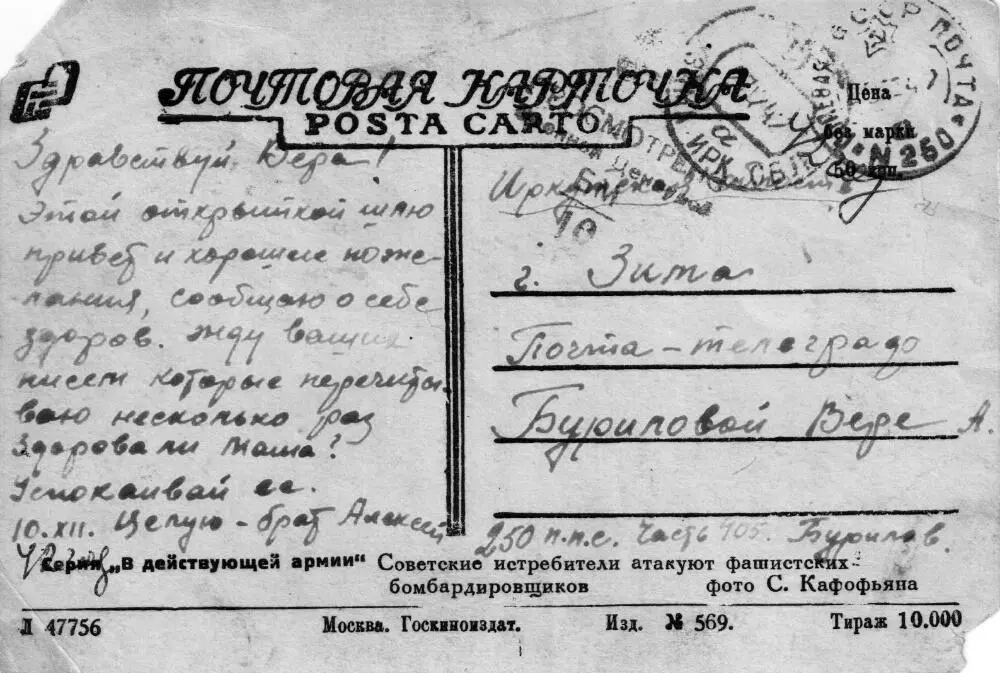 ПОЧТОВАЯ КАРТОЧКА
POSTA CARTO
Цена
без марки
50 коп.
СССР ПОЧТА
N 250
ИРК. ОБЛ.
ПРОСМОТРЕНО
Военной Цензурой
БМ
10
Здравствуй, Вера!
Этой открыткой шлю
привет и хорошие поже-
лания, сообщаю о себе
здоров. Жду ваших
писем которые перечиты
ваю несколько раз
Здорова ли Маша?
Успокаивай ее.
10.XII. Целую – брат Алексей
Иркутская область
г. Зима
Почта – телеграф
Буриловой Вере А.
250 п.п.с. Часть 105. Бурилов.
Серия „В действующей армии“ Советские истребители атакуют фашистских
бомбардировщиков фото С. Кафофьяна
Л 47756 Москва. Госкиноиздат. Изд. № 569. Тираж 10.000